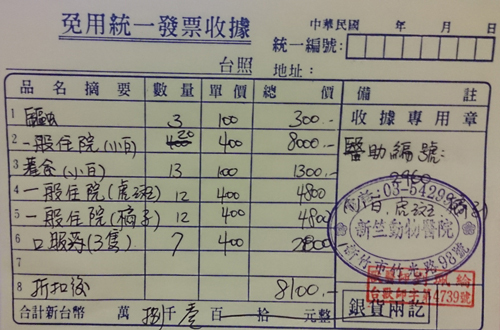 免用統一發票收據
中華民國 年 月 日
統一編號:
台照
地址:
品名摘要 數量 單價 總價 備註
1 驅蟲 3 100 300.-
收據專用章
2 一般住院(小白) 20 400 8000.-
醫助編號:
3 養食(小白) 13 100 1300.-
2960
4 一般住院(虎斑) 12 400 4800
電話:03-5429
小白 虎斑 橘子
5 一般住院(橘子) 12 400 4800
新竺動物醫院
6 口服药(3隻) 7 400 2800
新竹市竹光路98號
7
8 折扣後 8100.-
4739號
合計新台幣 萬 捌千壹百 拾 元整
銀貨兩訖